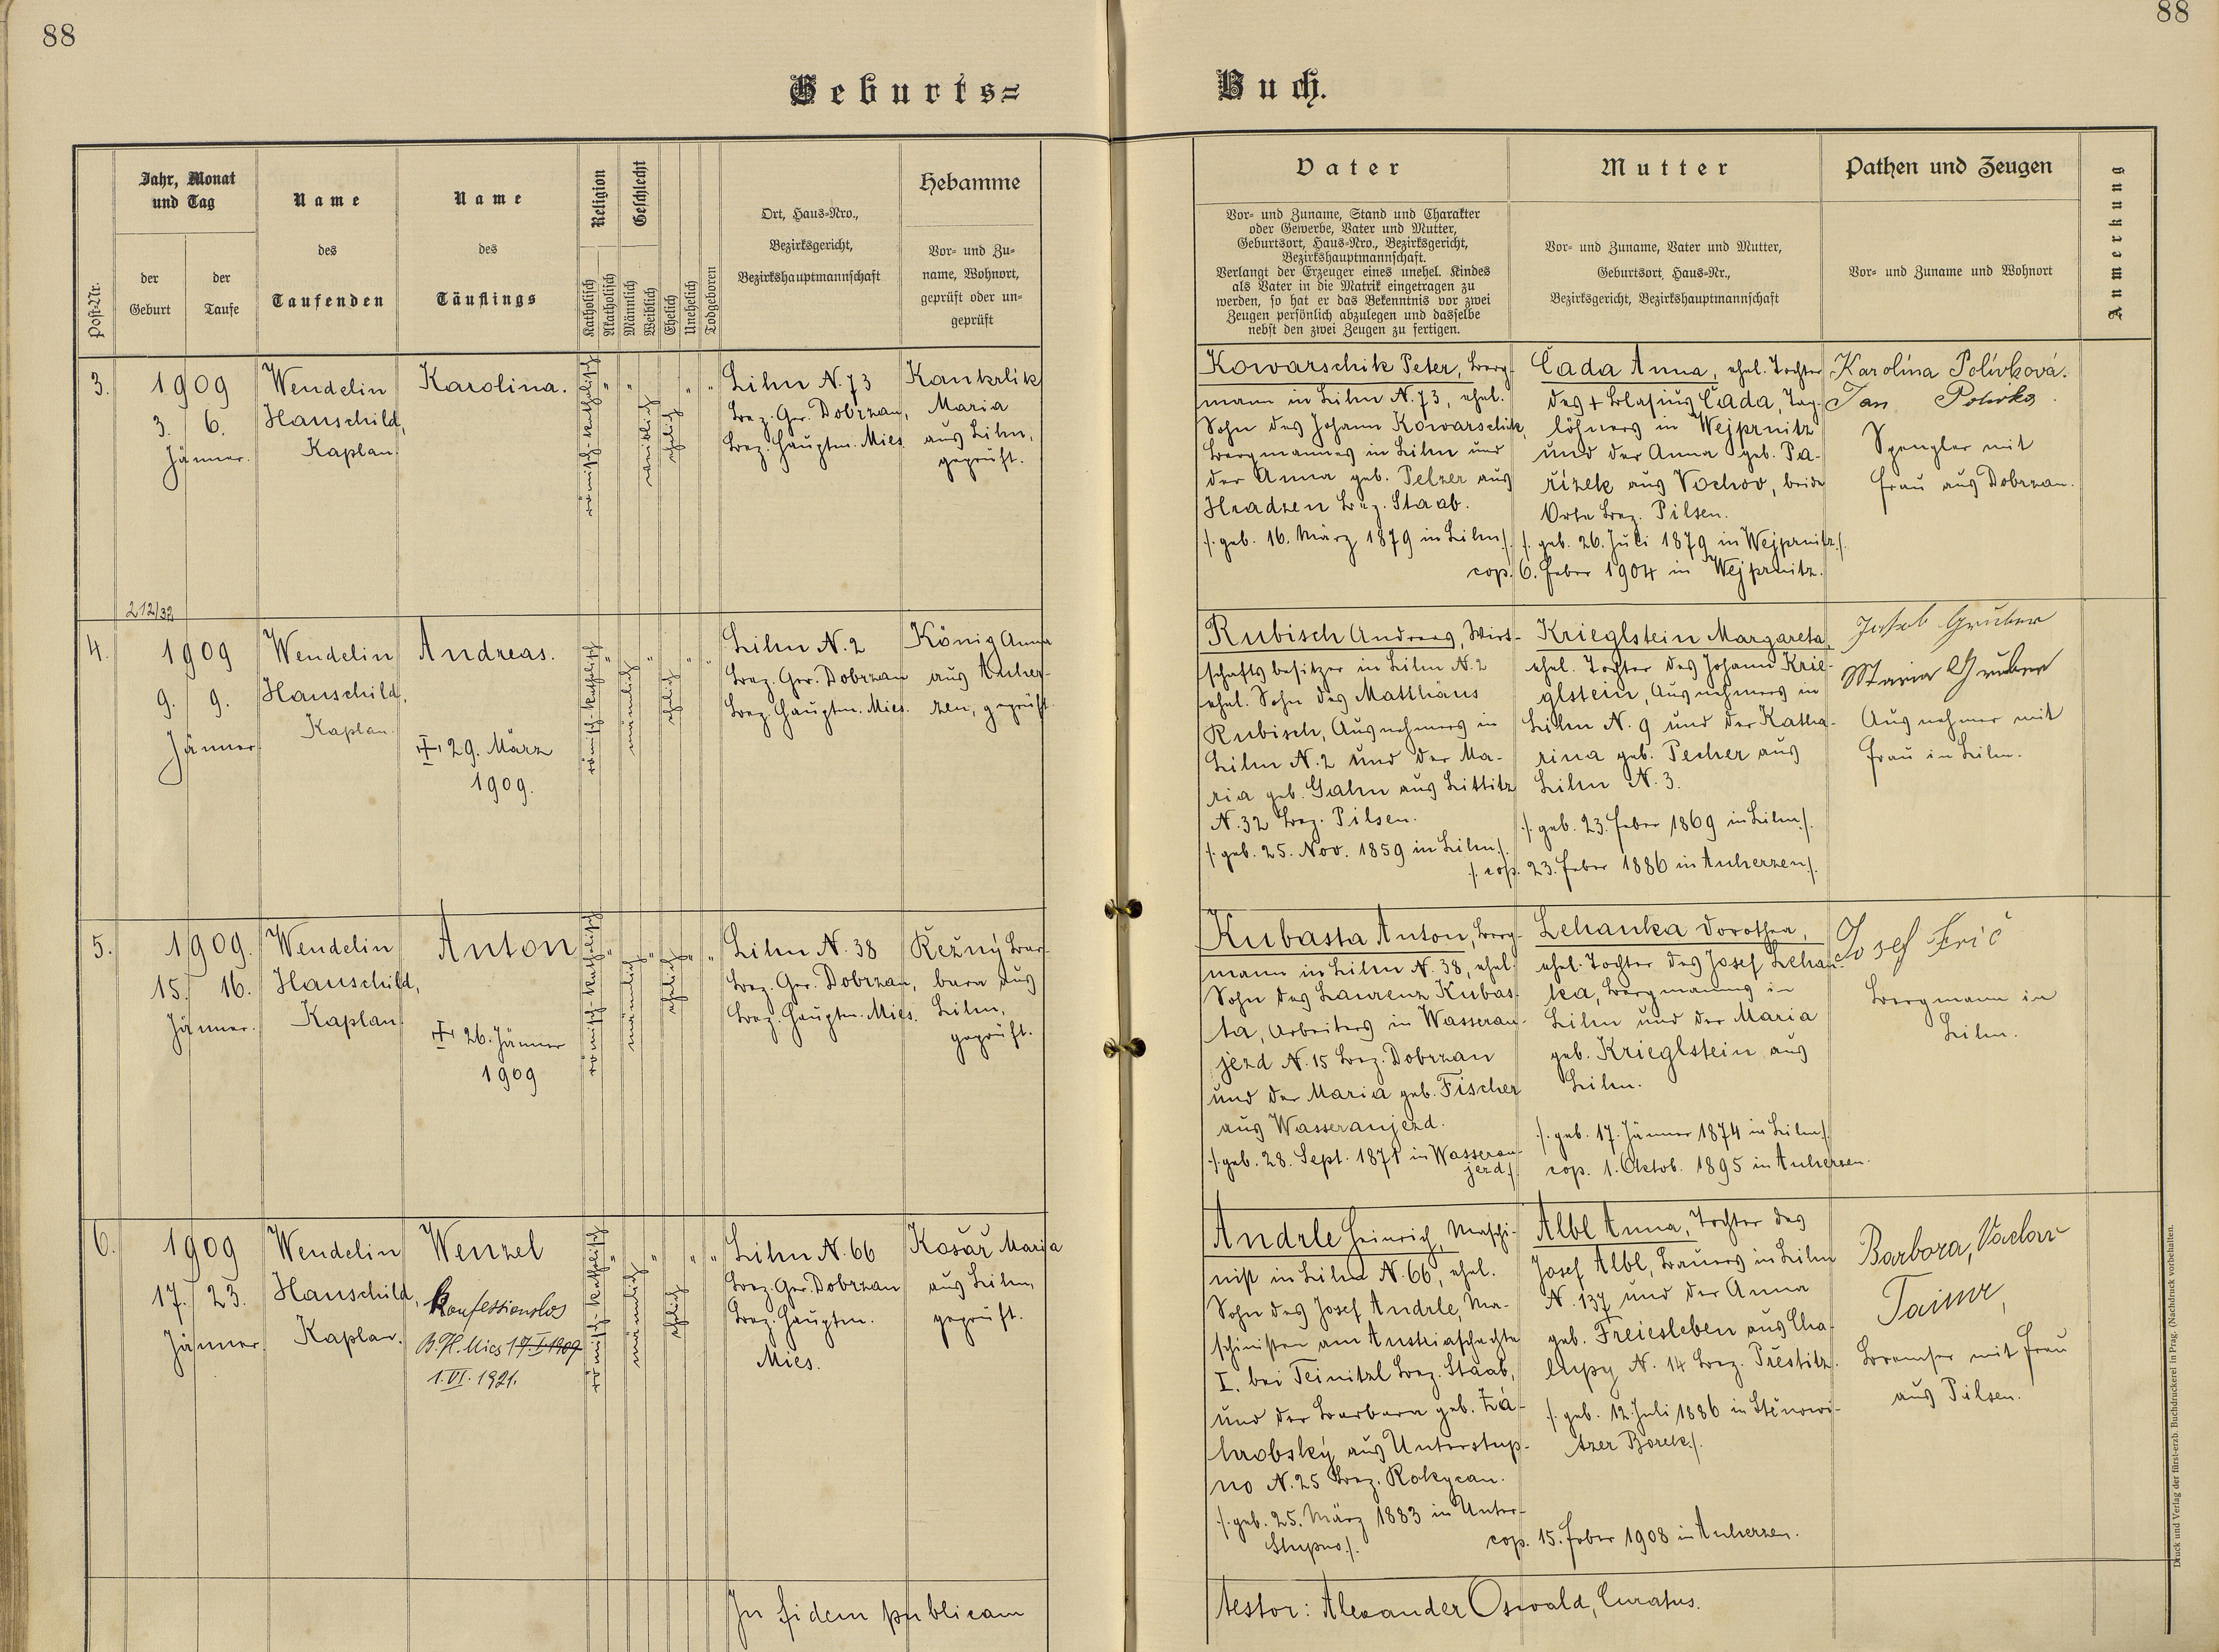 88
88
Geburts=
Buch.
Post-Nr.
Jahr, Monat
und Tag
der
Geburt
der
Taufe
Name
des
Taufenden
Name
des
Täuflings
Religion
Katholisch
Akatholisch
Geschlecht
Männlich
Weiblich
Ehelich
Unehelich
Todgeboren
Ort, Haus=Nro.,
Bezirksgericht,
Bezirkshauptmannschaft
Hebamme
Vor= und Zu=
name, Wohnort,
geprüft oder un=
geprüft
Vater
Vor= und Zuname, Stand und Charakter
oder Gewerbe, Vater und Mutter,
Geburtsort, Haus=Nro., Bezirksgericht,
Bezirkshauptmannschaft.
Verlangt der Erzeuger eines unehel. Kindes
als Vater in die Matrik eingetragen zu
werden, so hat er das Bekenntnis vor zwei
Zeugen persönlich abzulegen und dasselbe
nebst den zwei Zeugen zu fertigen.
Mutter
Vor= und Zuname, Vater und Mutter,
Geburtsort, Haus=Nr.,
Bezirksgericht, Bezirkshauptmannschaft
Pathen und Zeugen
Vor= und Zuname und Wohnort
Anmerkung
3.
1909
3. 6.
Jänner.
Wendelin
Hauschild,
Kaplan.
Karolina.
römisch-katholisch
"
"
weiblich
ehelich
"
"
Lihn N. 73
Bez. Ger. Dobrzan,
Bez. Hauptm. Mies.
Kankrlik
Maria
aus Lihn,
geprüft.
Kowarschik Peter, Berg-
mann in Lihn N. 73, ehel.
Sohn des Johann Kowarschik,
Bergmannes in Lihn und
der Anna geb. Pelzer aus
Hradzen Bez. Staab.
/. geb. 16. März 1879 in Lihn /.
Čada Anna, ehel. Tochter
des + Blasius Čada, Tag-
löhners in Wejprnitz
und der Anna geb. Pa-
řízek aus Vochov, beide
Orte Bez. Pilsen.
/. geb. 26. Juli 1879 in Wejprnitz /.
cop. 6. Feber 1904 in Wejprnitz.
Karolína Polívková.
Jan Polívka.
Spengler mit
Frau aus Dobrzan.
212/32
4.
1909
9. 9.
Jänner.
Wendelin
Hauschild,
Kaplan.
Andreas.
29. März
1909.
römisch-katholisch
"
männlich
"
ehelich
"
"
Lihn N. 2
Bez. Ger. Dobrzan
Bez. Hauptm. Mies.
König Anna
aus Auher-
zen, geprüft.
Rubisch Andreas, Wirt-
schaftsbesitzer in Lihn N. 2
ehel. Sohn des Matthäus
Rubisch, Ausnehmers in
Lihn N. 2 und der Ma-
ria geb. Gahn aus Littitz
N. 32 Bez. Pilsen.
/. geb. 25. Nov. 1859 in Lihn /.
Krieglstein Margareta,
ehel. Tochter des Johann Krie-
glstein, Ausnehmers in
Lihn N. 9 und der Katha-
rina geb. Pecher aus
Lihn N. 3.
/. geb. 23. Feber 1869 in Lihn /.
/. cop. 23. Feber 1886 in Auherzen /.
Josef Gruber
Maria Gruber
Ausnehmer mit
Frau in Lihn.
5.
1909.
15. 16.
Jänner.
Wendelin
Hauschild,
Kaplan.
Anton
26. Jänner
1909
römisch-katholisch
"
männlich
"
ehelich
"
"
Lihn N. 38
Bez. Ger. Dobrzan,
Bez. Hauptm. Mies.
Řežný Bar-
bara aus
Lihn,
geprüft.
Kubasta Anton, Berg-
mann in Lihn N. 38, ehel.
Sohn des Laurenz Kubas-
ta, Arbeiters in Wasserau-
jezd N. 15 Bez. Dobrzan
und der Maria geb. Fischer
aus Wasseraujezd.
/. geb. 28. Sept. 1871 in Wasserau-
jezd /.
Lehanka Dorothea,
ehel. Tochter des Josef Lehan-
ka, Bergmanns in
Lihn und der Maria
geb. Krieglstein aus
Lihn.
/. geb. 17. Jänner 1874 in Lihn /.
cop. 1. Oktob. 1895 in Auherzen.
Josef Frič
Bergmann in
Lihn.
6.
1909
17. 23.
Jänner.
Wendelin
Hauschild,
Kaplan.
Wenzel
konfessionslos
B. H. Mies 17. I. 1909
1. VI. 1921.
römisch-katholisch
"
männlich
"
ehelich
"
"
Lihn N. 66
Bez. Ger. Dobrzan
Bez. Hauptm.
Mies.
Košař Maria
aus Lihn,
geprüft.
Andrle Heinrich, Maschi-
nist in Lihn N. 66, ehel.
Sohn des Josef Andrle, Ma-
schinisten am Austriaschachte
I. bei Teinitzl Bez. Staab,
und der Barbara geb. Zá-
hrobský aus Unterstup-
no N. 25 Bez. Rokycan.
/. geb. 25. März 1883 in Unter-
Stupno /.
Albl Anna, Tochter des
Josef Albl, Brauers in Lihn
N. 137 und der Anna
geb. Freiesleben aus Cha-
lupy N. 14 Bez. Přestitz.
/. geb. 12. Juli 1886 in Stěnowi-
tzer Borek /.
cop. 15. Feber 1908 in Auherzen.
Barbora, Václav
Bremser mit Frau
aus Pilsen.
In fidem publicam
testor: Alexander Oswald, Curatus.
Druck und Verlag der fürst-erzb. Buchdruckerei in Prag. (Nachdruck vorbehalten.